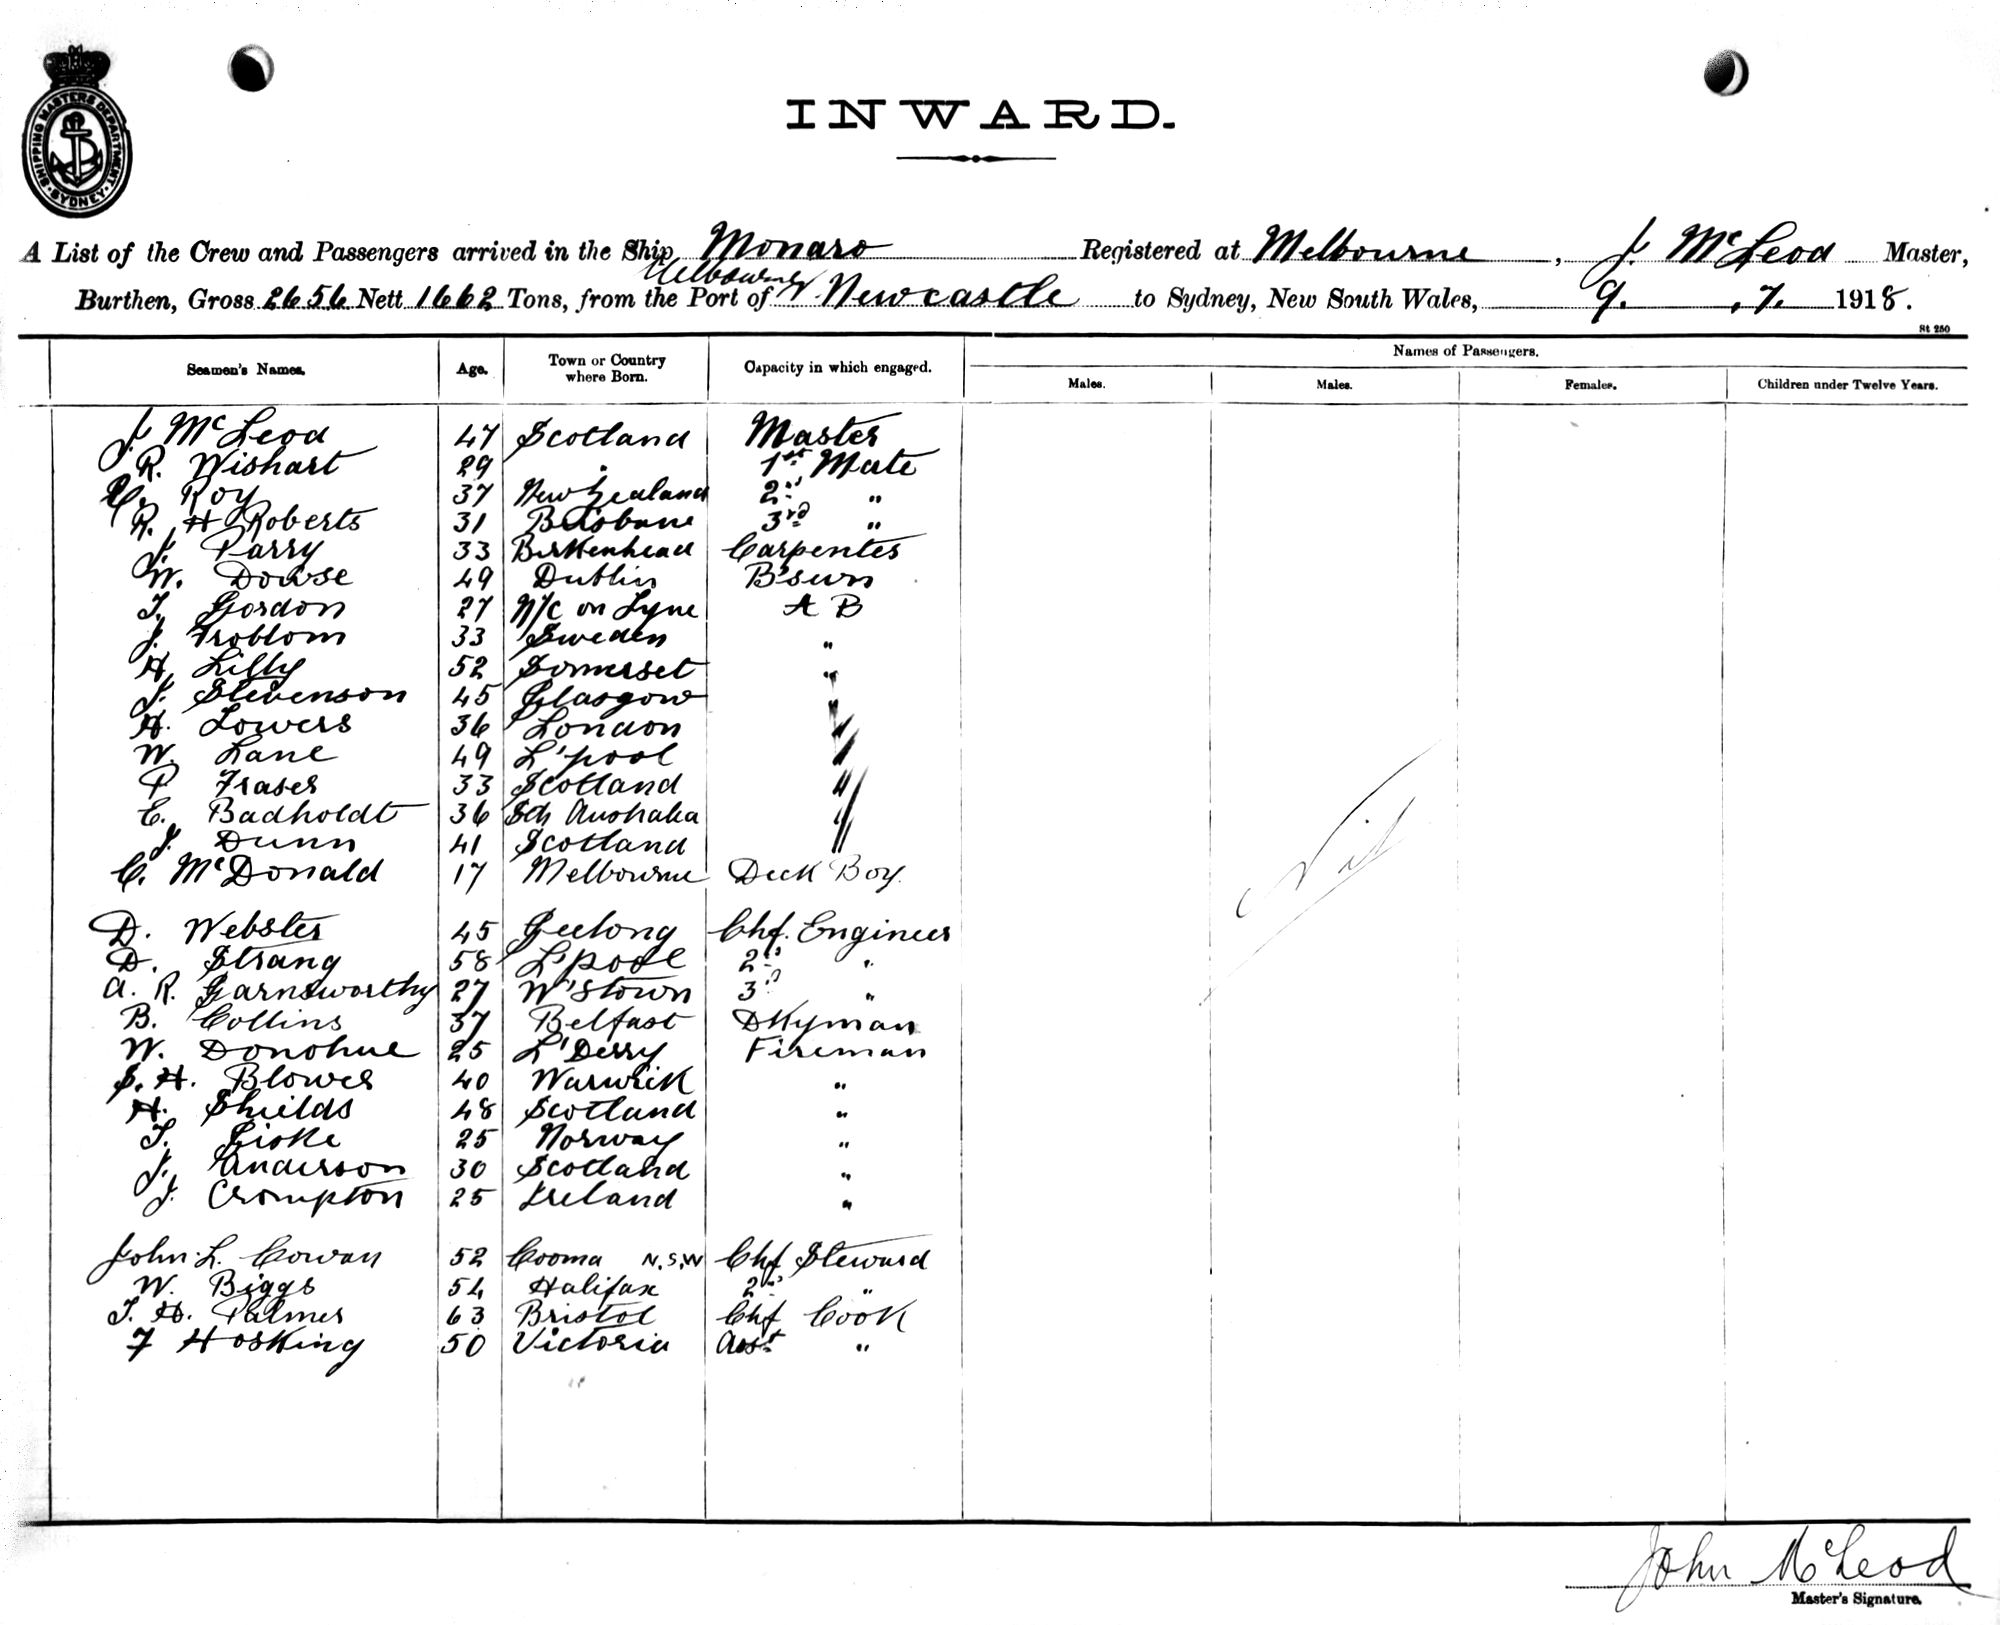 SHIPPING MASTERS DEPARTMENT · SYDNEY ·
INWARD.
A List of the Crew and Passengers arrived in the Ship Monaro Registered at Melbourne, J. McLeod Master,
Melbourne
Burthen, Gross 2656 Nett 1662 Tons, from the Port of Newcastle to Sydney, New South Wales, 9. 7. 1918.
St 250
Seamen's Names. Age. Town or Country where Born. Capacity in which engaged. Names of Passengers.
Males. Males. Females. Children under Twelve Years.
J. McLeod 47 Scotland Master
R. Wishart 29 " 1st Mate
C. Roy 37 New Zealand 2nd "
R. H Roberts 31 Brisbane 3rd "
J. Parry 33 Birkenhead Carpenter
W. Dowse 49 Dublin B'swn
T. Gordon 27 N/C on Tyne A B
J. Froblom 33 Sweden "
H. Lilly 52 Somerset "
J. Stevenson 45 Glasgow "
H. Lowers 36 London "
W. Lane 49 L'pool "
P. Fraser 33 Scotland "
E. Badholdt 36 Sth Australia "
J. Dunn 41 Scotland "
C. McDonald 17 Melbourne Deck Boy.
Nil
D. Webster 45 Geelong Chf. Engineer
D. Strang 58 L'pool 2nd "
A. R. Garnsworthy 27 W'stown 3rd "
B. Collins 37 Belfast DKyman
W. Donohue 25 L'Derry Fireman
S. H. Blower 40 Warwick "
H. Shields 48 Scotland "
T. Liske 25 Norway "
J. Anderson 30 Scotland "
J. Crompton 25 Ireland "
John L. Cowan 52 Cooma N.S.W Chf Steward
W. Biggs 54 Halifax 2nd "
T. H. Palmer 63 Bristol Chf Cook
F Hosking 50 Victoria Asst "
John McLeod
Master's Signature.